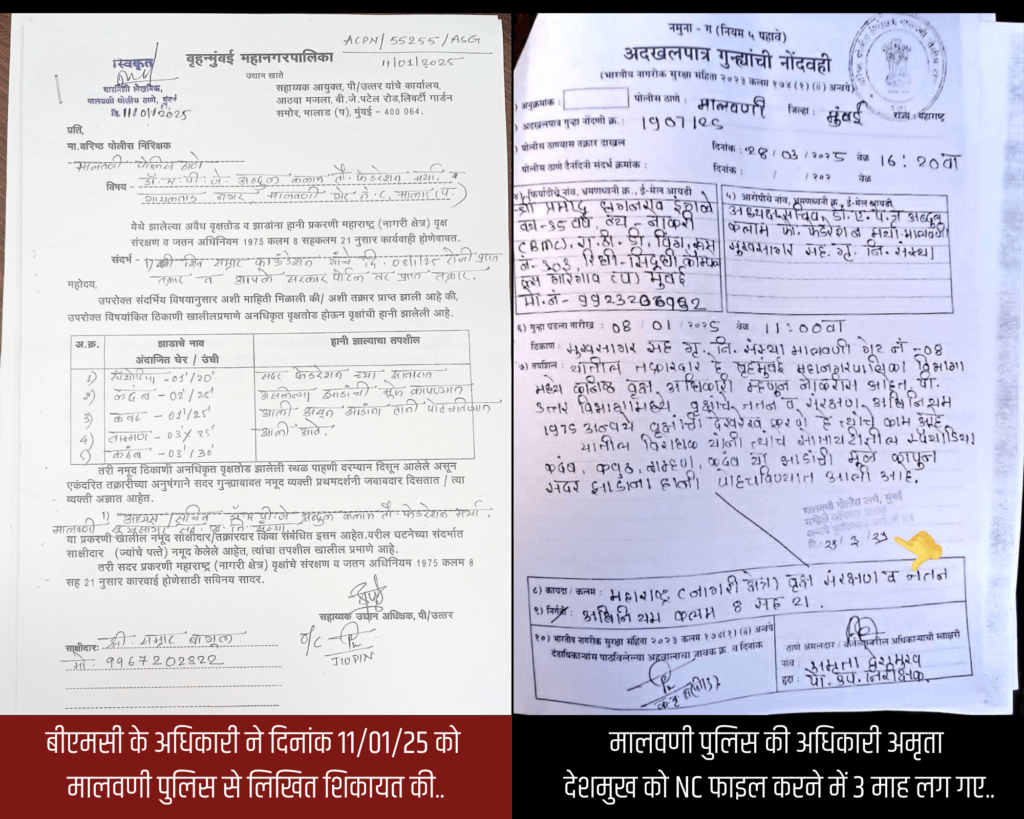 ACPN/55255/ASG
11/01/2025
स्विकृत
बृहन्मुंबई महानगरपालिका
उद्यान खाते
ठाणेनिहाय लेखनिक,
मालवणी पोलीस ठाणे, मुंबई
दि. 11/01/2025
सहाय्यक आयुक्त, पी/उत्तर यांचे कार्यालय,
आठवा मजला, बी.जे.पटेल रोड,लिबर्टी गार्डन
समोर, मालाड (प), मुंबई - 400 064.
प्रति,
मा.वरिष्ठ पोलीस निरिक्षक
मालवणी पोलिस ठाणे
विषय - डॉ. ए. पी. जे. अब्दुल कलाम फेडरेशन मर्या.
नगर मालवणी गेट नं. ८, मालाड (प.)
येथे झालेल्या अवैध वृक्षतोड व झाडांना हानी प्रकरणी महाराष्ट्र (नागरी क्षेत्र) वृक्षांचे
संरक्षण व जतन अधिनियम 1975 कलम 8 सहकलम 21 नुसार कार्यवाही होणेबाबत.
संदर्भ - सम्राट फाउंडेशन यांचे दि. 08/1/25 रोजी प्राप्त
तक्रार व आपले सरकार पोर्टल वर प्राप्त तक्रार.
महोदय,
उपरोक्त संदर्भिय विषयानुसार अशी माहिती मिळाली की/ अशी तक्रार प्राप्त झाली आहे की,
उपरोक्त विषयांकित ठिकाणी खालीलप्रमाणे अनधिकृत वृक्षतोड होऊन वृक्षांची हानी झालेली आहे.
अ.क्र. झाडाचे नाव हानी झाल्याचा तपशील
अंदाजित घेर / उंची
1) स्पॅथोडिया - 01'/20' सदर फेडरेशन च्या आवारात
2) कदंब - 02'/25' असलेल्या झाडांची मूळे कापण्यात
3) कवठ - 01'/25' आली असून झाडांना हानी पोहचविण्यात
4) ताम्हण - 03'x25' आली आहे.
5) कदंब - 03'/30'
तरी नमूद ठिकाणी अनधिकृत वृक्षतोड झालेली स्थळ पाहणी दरम्यान दिसून आलेले असून
एकंदरित तक्रारीच्या अनुषंगाने सदर गुन्ह्याबाबत नमूद व्यक्ती प्रथमदर्शनी जबाबदार दिसतात / त्या
व्यक्ती अज्ञात आहेत.
1) अध्यक्ष/सचिव डॉ. ए. पी. जे. अब्दुल कलाम फेडरेशन मर्या.
मालवणी सुखसागर सह. गृ. नि. संस्था.
या प्रकरणी खालील नमूद साक्षीदार/तक्रारदार किंवा संबंधित इसम आहेत.वरील घटनेच्या संदर्भात
साक्षीदार (ज्यांचे पत्ते) नमूद केलेले आहेत, त्यांचा तपशील खालील प्रमाणे आहे.
तरी सदर प्रकरणी महाराष्ट्र (नागरी क्षेत्र) वृक्षांचे संरक्षण व जतन अधिनियम 1975 कलम 8
सह 21 नुसार कारवाई होणेसाठी सविनय सादर.
सहाय्यक उद्यान अधिक्षक, पी/उत्तर
साक्षीदार: श्री. सम्राट बागुल
मो. 9967202822
O/C
JTOPIN
नमुना - ग (नियम ५ पहावे)
अदखलपात्र गुन्ह्यांची नोंदवही
(भारतीय नागरीक सुरक्षा संहिता २०२३ कलम १७४(१) (ii) अन्वये)
१) अनुक्रमांक : पोलीस ठाणे : मालवणी जिल्हा : मुंबई राज्य : महाराष्ट्र
२) अदखलपात्र गुन्हा नोंदणी क्र. : 1907/25
३) पोलीस ठाण्यास तक्रार दाखल दिनांक : 28/03/२०२5 वेळ 16:20वा
पोलीस ठाणे दैनंदिनी संदर्भ क्रमांक : दिनांक : / /२०२ वेळ
४) फिर्यादीचे नाव, भ्रमणध्वनी क्र., ई-मेल आयडी ५) आरोपीचे नाव, भ्रमणध्वनी क्र., ई-मेल आयडी
श्री प्रमोद इंगळे
वय-35 वर्षे, व्यं-नोकरी
(BMC), रूम
नं.-303, रिध्दी-सिध्दी
गोरेगाव (प) मुंबई
मो.नं-9923206992
अध्यक्ष सचिव, डॉ. ए. पी. जे अब्दुल
कलाम फेडरेशन मर्या. मालवणी
सुखसागर सह. गृ. नि. संस्था
६) गुन्हा घडला तारीख : 08/01/२०२5 वेळ 11:00वा
ठिकाण : सुखसागर सह गृ. नि. संस्था मालवणी गेट नं -08
७) तपशिल : यातील तक्रारदार हे बृहमुंबई महानगरपालिका विभागा
मध्ये कनिष्ठ वृक्ष अधिकारी म्हणून नोकरीस आहेत. पी.
उत्तर विभागामध्ये वृक्षांचे जतन व संरक्षण अधिनियम
1975 अन्वये वृक्षांची देखरेख करणे हे त्यांचे काम आहे.
यातील विरोधक यांनी त्यांचे सोसायटीतील स्पॅथोडिया
कदंब, कवठ, ताम्हण, कदंब या झाडांची मूळे कापून
सदर झाडांना हानी पोहचविण्यात आली आहे.
मालवणी पोलीस ठाणे, मुंबई
८) कायदा / कलम : महाराष्ट्र (नागरी क्षेत्र) वृक्ष संरक्षण व जतन
९) निर्गती : अधिनियम कलम 8 सह 21.
१०) भारतीय नागरीक सुरक्षा संहिता २०२३ कलम १७४(१) (ii) अन्वये
दंडाधिकाऱ्यांस पाठविलेल्या अहवालाचा जावक क्र. व दिनांक
ठाणे अंमलदार / कर्तव्यावरील अधिकाऱ्याची स्वाक्षरी
नाव : अमृता देशमुख
हुद्दा : पो. उप. निरीक्षक.
बीएमसी के अधिकारी ने दिनांक 11/01/25 को
मालवणी पुलिस से लिखित शिकायत की..
मालवणी पुलिस की अधिकारी अमृता
देशमुख को NC फाइल करने में 3 माह लग गए..